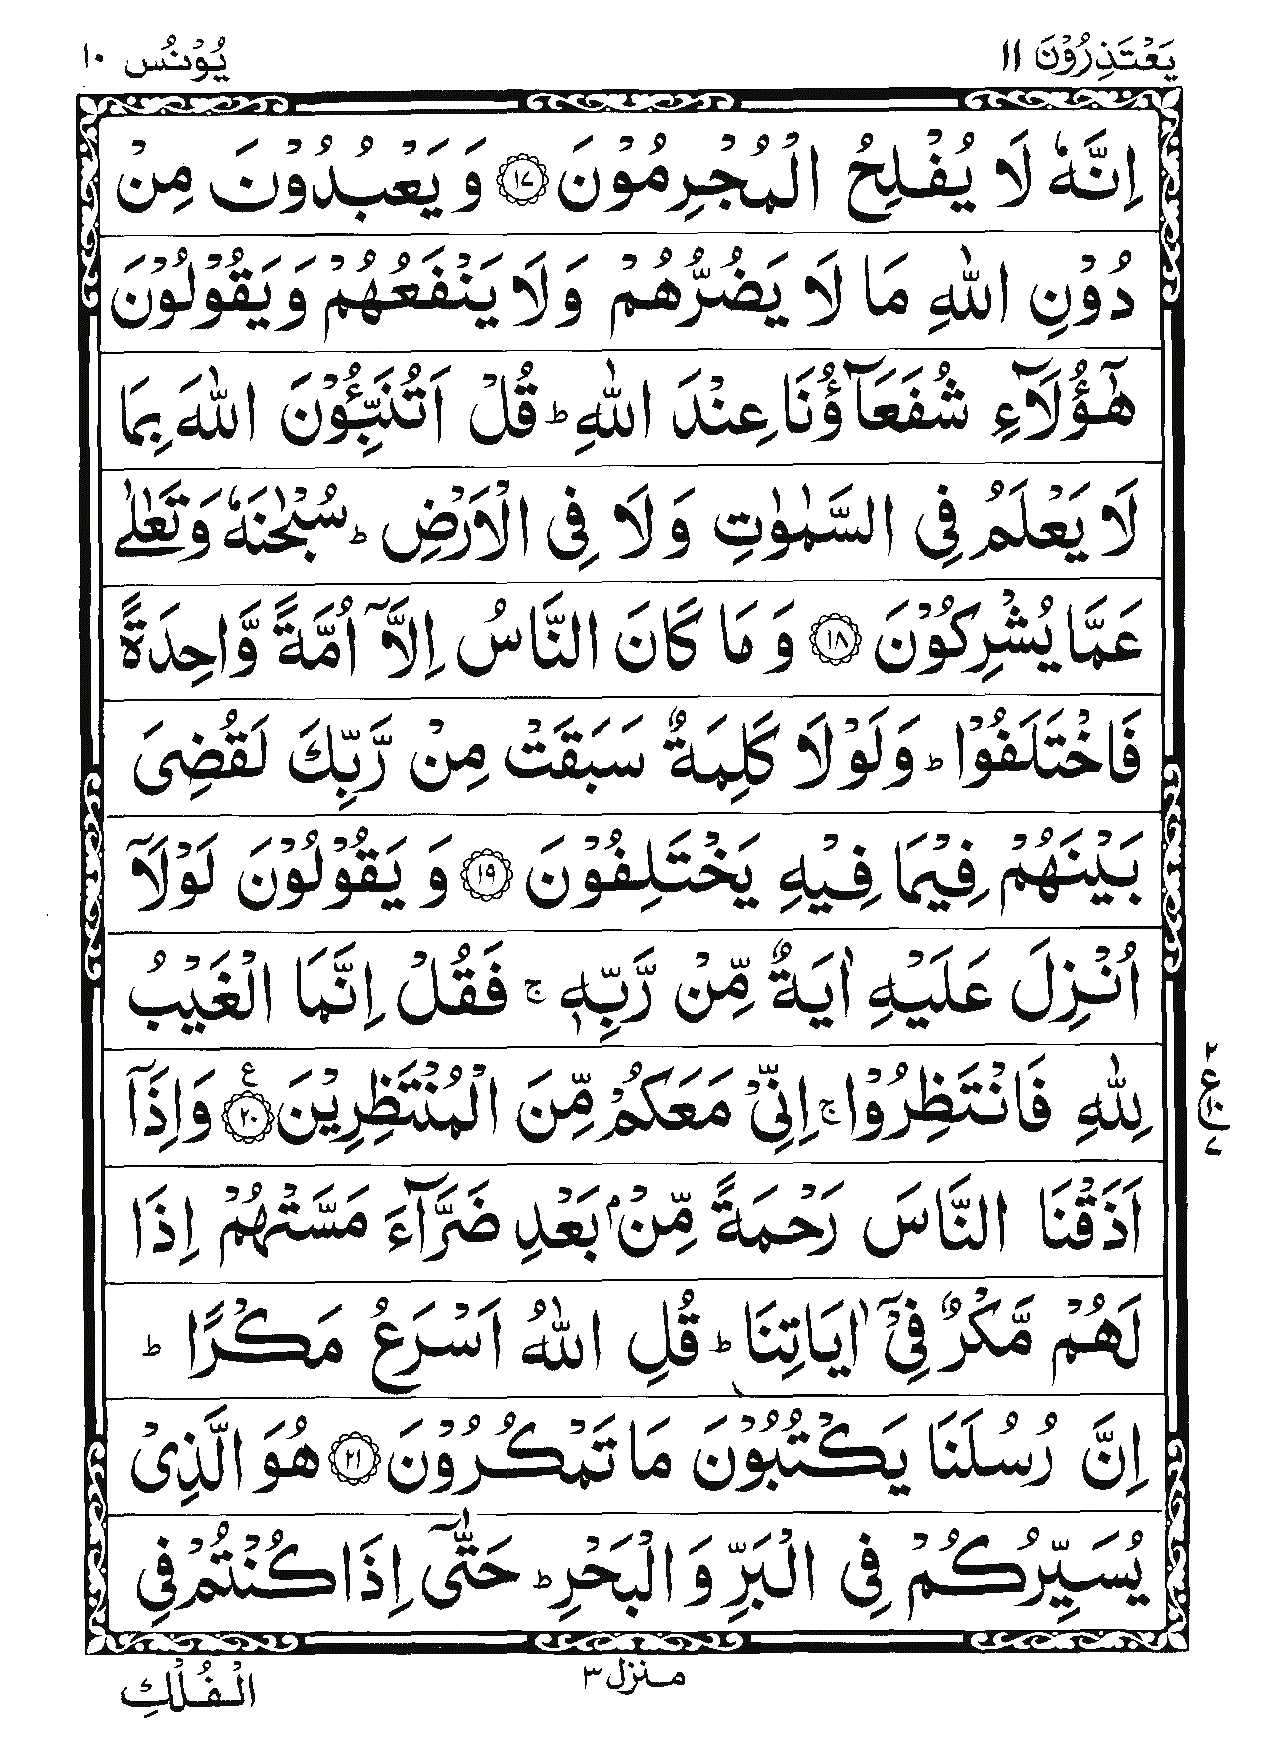 يَعْتَذِرُوْنَ ۱۱
يُوْنُس ۱۰
اِنَّهٗ لَا يُفْلِحُ الْمُجْرِمُوْنَ ۝۱۷ وَ يَعْبُدُوْنَ مِنْ
دُوْنِ اللّٰهِ مَا لَا يَضُرُّهُمْ وَلَا يَنْفَعُهُمْ وَيَقُوْلُوْنَ
هٰٓؤُلَآءِ شُفَعَآؤُنَا عِنْدَ اللّٰهِ ؕ قُلْ اَتُنَبِّـُٔوْنَ اللّٰهَ بِمَا
لَا يَعْلَمُ فِى السَّمٰوٰتِ وَ لَا فِى الْاَرْضِ ؕ سُبْحٰنَهٗ وَتَعٰلٰى
عَمَّا يُشْرِكُوْنَ ۝۱۸ وَ مَا كَانَ النَّاسُ اِلَّآ اُمَّةً وَّاحِدَةً
فَاخْتَلَفُوْا ؕ وَلَوْلَا كَلِمَةٌ سَبَقَتْ مِنْ رَّبِّكَ لَقُضِىَ
بَيْنَهُمْ فِيْمَا فِيْهِ يَخْتَلِفُوْنَ ۝۱۹ وَ يَقُوْلُوْنَ لَوْلَآ
اُنْزِلَ عَلَيْهِ اٰيَةٌ مِّنْ رَّبِّهٖ ۚ فَقُلْ اِنَّمَا الْغَيْبُ
لِلّٰهِ فَانْتَظِرُوْا ۚ اِنِّىْ مَعَكُمْ مِّنَ الْمُنْتَظِرِيْنَ ۝۲۰ ع وَاِذَآ
۲
ع ۱۰
۷
اَذَقْنَا النَّاسَ رَحْمَةً مِّنْۢ بَعْدِ ضَرَّآءَ مَسَّتْهُمْ اِذَا
لَهُمْ مَّكْرٌ فِىْٓ اٰيَاتِنَا ؕ قُلِ اللّٰهُ اَسْرَعُ مَكْرًا ؕ
اِنَّ رُسُلَنَا يَكْتُبُوْنَ مَا تَمْكُرُوْنَ ۝۲۱ هُوَ الَّذِىْ
يُسَيِّرُكُمْ فِى الْبَرِّ وَ الْبَحْرِ ؕ حَتّٰٓى اِذَا كُنْتُمْ فِى
منزل ۳
الْفُلْكِ